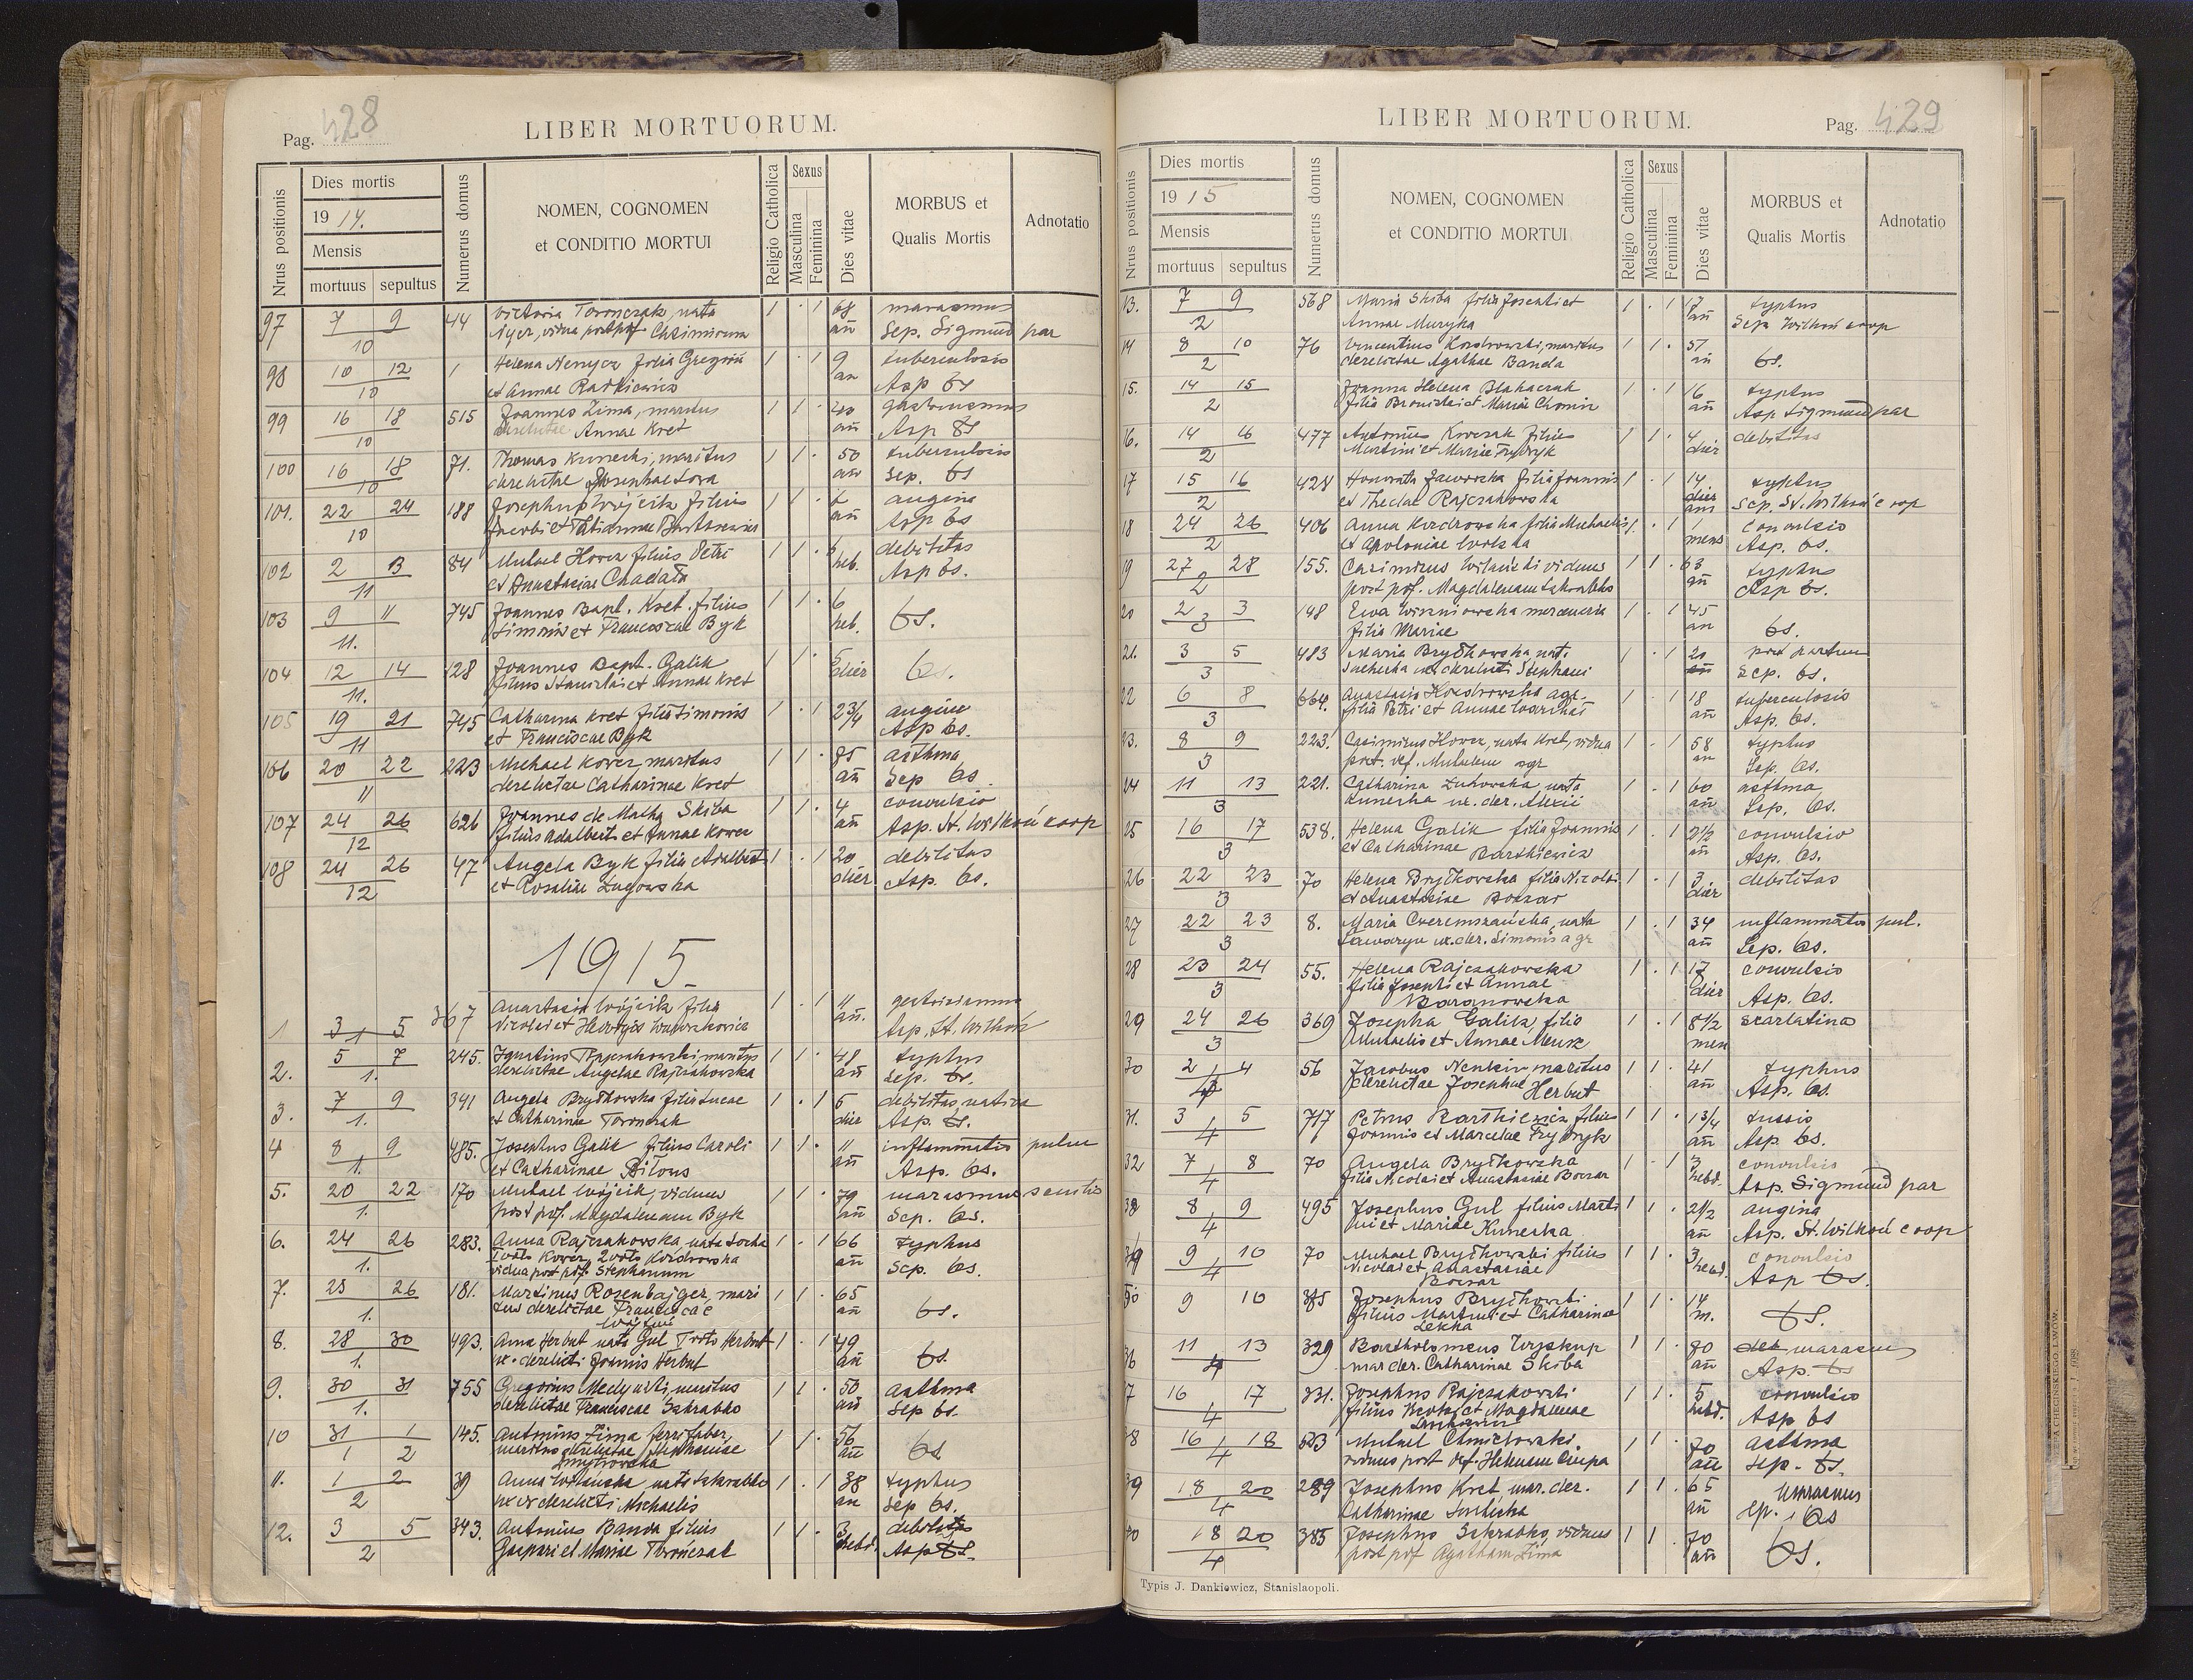 Pag. 428
LIBER MORTUORUM.
Nrus positionis
Dies mortis
1914.
Mensis
mortuus sepultus
Numerus domus
NOMEN, COGNOMEN
et CONDITIO MORTUI
Religio Catholica
Sexus
Masculina
Feminina
Dies vitae
MORBUS et
Qualis Mortis
Adnotatio
97 7 9 10 44 Victoria Torończak, nata 1 · 1 68 marasmus
vidua Casimirum añ Sep. Sigmund par
98 10 12 10 1 Helena filia Gregorii 1 · 1 9 tuberculosis
et Annae Radkiewicz an Asp bs
99 16 18 10 515 Joannes Zima, maritus 1 1 · 40
derelictae Annae Kret añ Asp bs
100 16 18 10 71. Thomas Kunecki, maritus 1 1 · 50 tuberculosis
derelictae Josephae añ Sep. bs
101. 22 24 10 188 Josephus Wójcik filius 1 1 · angina
Jacobi et Tatiannae añ Asp bs
102 2 3 11 84 Michael Kower filius Petri 1 1 · debilitas
et Anastasiae Chadata heb. Asp bs.
103 9 11 11. 745 Joannes Bapt. Kret. filius 1 1 · 6
Simonis et Franciscae Byk heb. bs.
104 12 14 11. 128 Joannes Bapt. Galik 1 1 · 5
filius Stanislai et Annae Kret dier bs.
105 19 21 11 745 Catharina Kret filia Simonis 1 · 1 2 3/4 angina
et Franciscae Byk Asp bs.
106 20 22 11 223 Michael Kower maritus 1 1 · 85 asthma
derelictae Catharinae Kret añ Sep bs
107 24 26 12 626 Joannes de Matha Skiba 1 1 · 4 convulsio
filius Adalberti et Annae Kower añ Asp. St. Wilkoń coop
108 24 26 12 47 Angela Byk filia Adalberti 1 · 1 20 debilitas
et Rosaliae Zugowska dier Asp. bs.
1915
1 3 5 1 367 Anastasia Wójcik filia 1 · 1 11
Nicolai et añ. Asp. St. Wilkoń
2. 5 7 1. 245. Ignatius Rajczakowski maritus 1 1 · 48 typhus
derelictae Angelae Rajczakowska añ Sep. bs.
3. 7 9 1. 341 Angela Brydkowska filia Lucae 1 · 1 5 debilitas nativa
et Catharinae Torończak dier Asp. bs.
4 8 9 1. 485. Josephus Galik filius Caroli 1 1 · 11 inflammatio pulm
et Catharinae Bilous añ Asp. bs.
5. 20 22 1. 170 Michael Wójcik, viduus 1 1 · 79 marasmus senilis
post pdf. Magdalenam Byk añ Sep. bs.
6. 24 26 1. 283. Anna Rajczakowska, nata Socha 1 · 1 66 typhus
1voto Kower, 2voto Kozdrowska añ Sep. bs.
vidua post pdf. Stephanum
7. 25 26 1. 181. Martinus Rosenbajger, mari 1 1 · 65
tus derelictae Franciscae añ bs.
8. 28 30 1. 493. Anna Herbut nata Gul 1voto Herbut 1 · 1 49
ux. derelicti Joannis Herbut añ bs.
9. 30 31 1. 755 Gregorius maritus 1 1 · 50 asthma
derelictae Franciscae Szkrabko añ Sep bs.
10 31 1 1 2 145. Antonius Zima ferrifaber, 1 1 · 56
maritus derelictae Stephaniae añ bs
Dmytrowska
11. 1 2 2 39 Anna nata Szkrabko 1 · 1 38 typhus
uxor derelicti Michaelis an Sep bs.
12. 3 5 2 343. Antonius Banda filius 1 1 · 3 debilitas
Gaspari et Mariae Torończak hebd. Asp bs.
Pag. 429
LIBER MORTUORUM.
Nrus positionis
Dies mortis
1915
Mensis
mortuus sepultus
Numerus domus
NOMEN, COGNOMEN
et CONDITIO MORTUI
Religio Catholica
Sexus
Masculina
Feminina
Dies vitae
MORBUS et
Qualis Mortis
Adnotatio
13. 7 9 2 568 Maria Skiba filia Josephi et 1 · 1 17 typhus
Annae Muzyka añ Sep Wilkoń coop
14 8 10 2 76 Vincentius Kozdrowski, maritus 1 1 · 57
derelictae Agathae Banda añ bs.
15. 14 15 2 Joanna Helena Blahaczak 1 · 1 16 typhus
filia Bronislai et Mariae Chomin añ Asp. Sigmund par
16. 14 16 2 477 Antonius Krwczak filius 1 1 · 4 debilitas
Martini et Mariae Frydryk dier
17 15 16 2 428 Honorata Jaworska filia Joannis 1 · 1 14 typhus
et Theclae Rajczakowska añ Sep. St. Wilkoń coop
18 24 26 2 406 Anna Kozdrowska filia Michaelis 1 · 1 1 convulsio
et Apoloniae Wolska mens Asp. bs.
19 27 28 2 155. Casimirus viduus 1 1 · 63 typhus
post pdf. Magdalenam Szkrabko añ Asp bs.
20 2 3 3 148 Ewa Wiszniowska mercenaria 1 · 1 45
filia Mariae an bs.
21. 3 5 3 483 Maria Brydkowska nat. 1 · 1 20 post partum
ux. derelicti Stephani añ Sep. bs.
22 6 8 3 664. Anastasia Kozdrowska agr. 1 · 1 18 tuberculosis
filia Petri et Annae añ Asp. bs.
23. 8 9 3 223. Casimirus Kower, nata Kret, vidua 1 · 1 58 typhus
post. def. Michaelem agr an Sep. bs.
24 11 13 3 221. Catharina Zukowska, nata 1 · 1 60 asthma
Kunecka ux. der. Alexii añ Sep. bs.
25 16 17 3 538. Helena Galik filia Joannis 1 · 1 2 1/2 convulsio
et Catharinae Barthiewicz añ Asp. bs.
26 22 23 3 70 Helena Brydkowska filia Nicolai 1 · 1 3 debilitas
et Anastasiae Boczar dier
27 22 23 3 8. Maria Czeremszańska, nata 1 · 1 34 inflammatio pul.
Saworyn ux. der. Simonis agr añ Sep. bs.
28 23 24 3 55. Helena Rajczakowska 1 · 1 17 convulsio
filia Josephi et Annae dier Asp. bs.
Baranowska
29 24 26 3 369 Josepha Galik, filia 1 · 1 8 1/2 scarlatina
Michaelis et Annae men
30 2 4 4 56 Jacobus maritus 1 1 · 41 typhus
derelictae Josephae Herbut añ Asp. bs.
31. 3 5 4 717 Petrus Barthiewicz filius 1 1 · 1 3/4 tussis
Joannis et Marcelae Frydryk añ Asp. bs.
32 7 8 4 70 Angela Brydkowska 1 · 1 3 convulsio
filia Nicolai et Anastasiae Boczar hebd. Asp. Sigmund par
33 8 9 4 495 Josephus Gul filius Marti 1 1 · 2 1/2 angina
ni et Mariae Kunecka añ Asp. St. Wilkoń coop
34 9 10 4 70 Michael Brydkowski filius 1 1 · 3 convulsio
Nicolai et Anastasiae hebd. Asp bs.
Boczar
9 10 385 Josephus Brydkowski 1 1 · 14
filius Martini et Catharinae m. bs.
36 11 13 4 329 Bartholomeus 1 1 · 80 marasmus
mar der. Catharinae Skiba an Asp. bs
7 16 17 4 331. Josephus Rajczakowski 1 1 · 5 convulsio
filius et Magdalenae hebd. Asp bs
38 16 18 4 Michael Chmielowski 1 1 · 70 asthma
viduus post def. Helenam añ Sep. bs.
39 18 20 4 289 Josephus Kret, mar. der. 1 1 · 65 Marasmus
Catharinae añ Sp. bs
40 18 20 4 385 Josephus Szkrabko, viduus 1 1 · 70
post pdf Agatham Zima añ bs.
Typis J. Dankiewicz, Stanislaopoli.